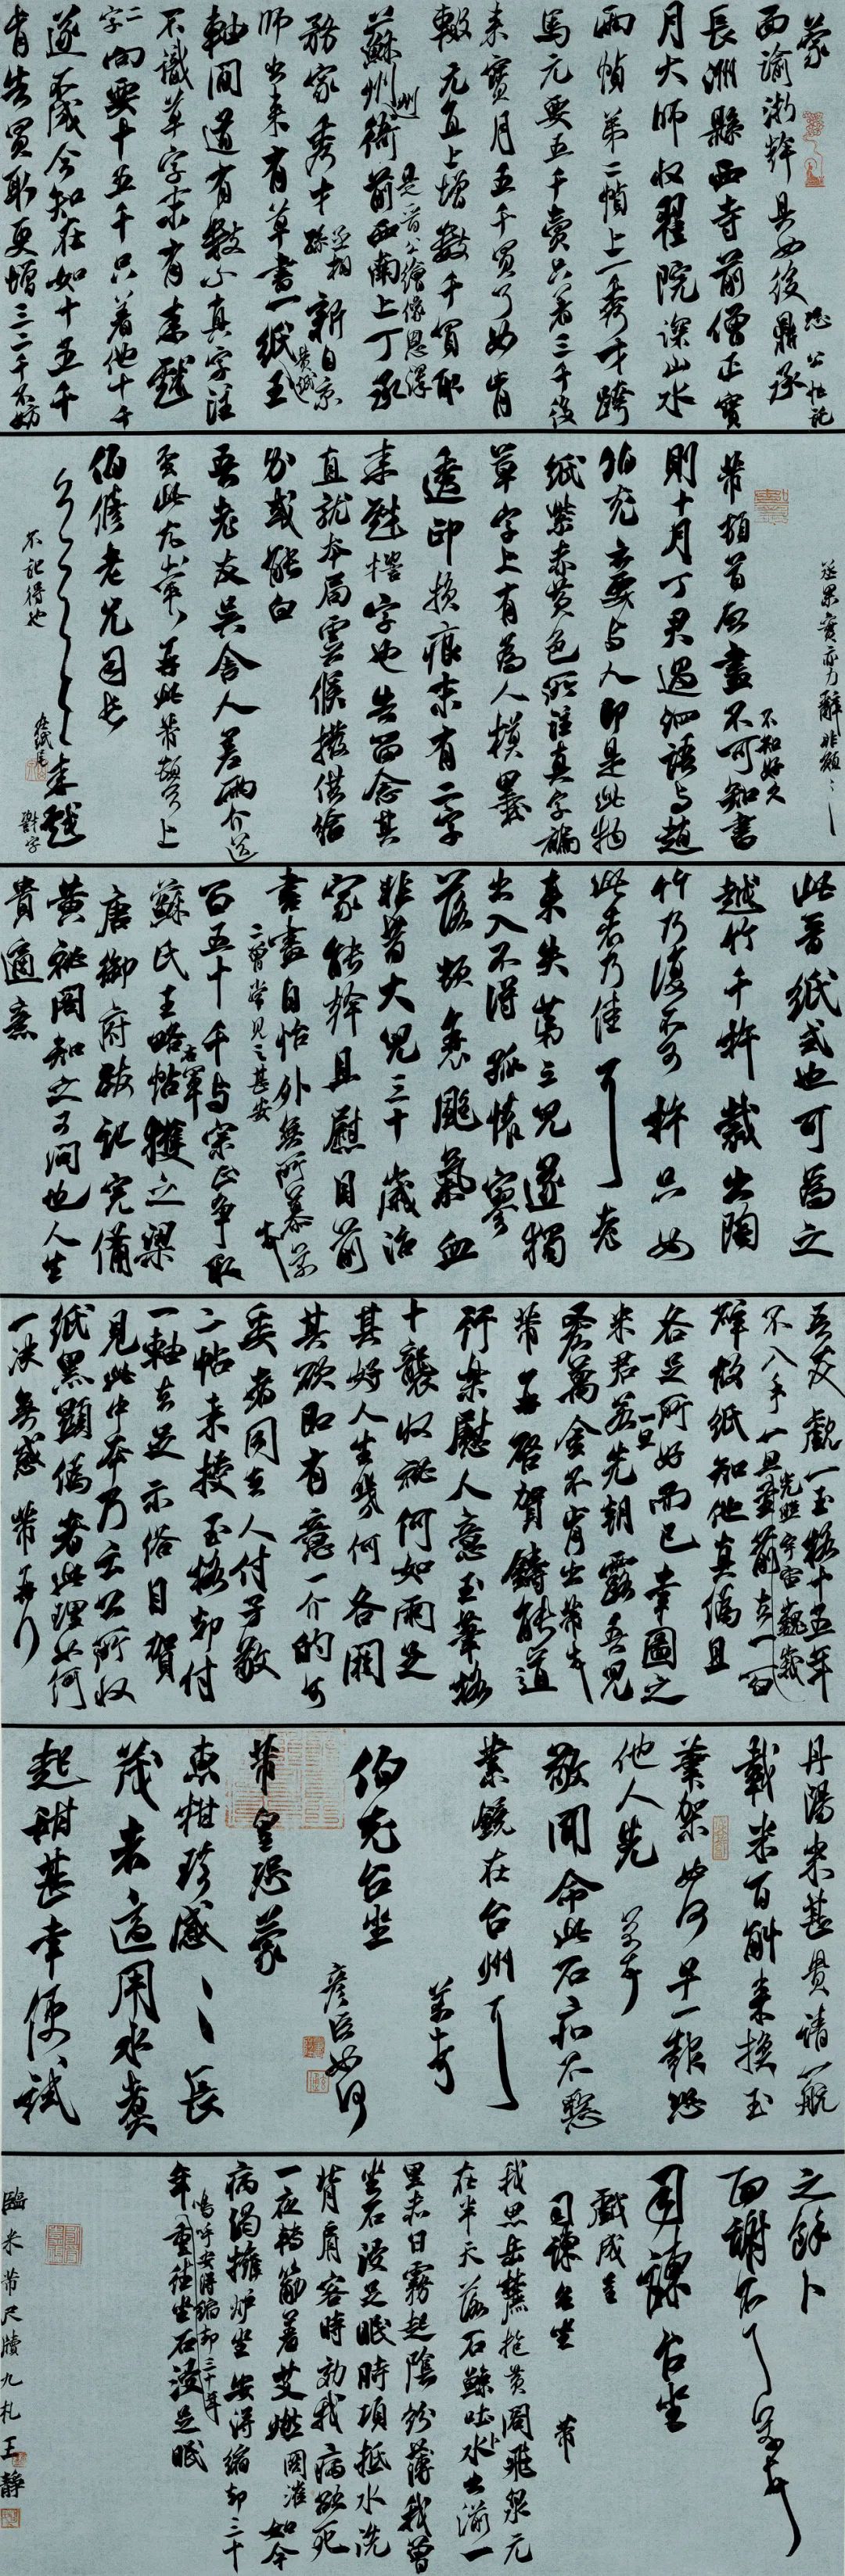 蒙
面諭浙幹具如後 恐公忙託 鼎承
長洲縣西寺前僧正寶
月大師收翟院深山水
兩幀 第二幀上一秀才跨
馬元要五千賣只著三千後
來寶月五千買了如肯
輟元直上增數千買取
蘇州衙前西南上丁承
是晉公繪像恩澤
務家秀才 丞相孫 新自京
師出來有草書一紙
軸間道有數小真字注
不識草字末有來戲
二字向要十五千只著他十千
遂不成今知在如十五千
肯告買取更增三二千不妨
芾頓首啓畫不可知書
則十月丁君過泗語與趙
伯充云要與人即是此物
紙紫赤黃色所注真字褊
草字上有為人模墨
透印損痕末有二字
來戲 戲字也告留念其
直就本局雲侯撥供給
分或能白
吾老友吳舍人差兩介送
至此尤幸幸再此芾頓首上
伯脩老兄司長
來戲
不記得也
在紙尾
戲字
此晉紙式也可為之
越竹千杵裁出陶
竹乃復不可杵只如
此者乃佳耳老
來失第三兒遂獨
出入不得孤懷寥
落頓衰颯氣血
非昔大兒三十歲治
家能幹且慰目前
書畫自怡外無所慕芾
二曾常見之甚安
百五十千與宗正爭取
蘇氏王略帖 右軍 獲之梁
唐御府跋記完備
黃祕閣知之可問也人生
貴適意
吾友覷一玉格十五年
不入手一旦光照宇宙巍峨至前去一百
碎故紙知他真偽且
各足所好而已幸圖之
米君若一旦先朝露吾兒
吝萬金不肯出芾
芾再啓賀鑄能道
行樂慰人意玉筆格
十襲收祕何如兩足
其好人生幾何各閼
其欲即有意一介的可
委者同去人付子敬
二帖來授玉格却付
一軸去足示俗目賀
見此中本乃云公所收
紙黑顯偽者此理如何
一決無惑芾再行
丹陽米甚貴請一航
載米百斛來換玉
筆架如何早一報恐
他人先 芾頓首
敬聞命此石 不
業鏡在台州耳
芾頓首
伯充台坐
彥臣如何
芾皇恐蒙
惠柑珍感感長
茂者適用水煮
起甜甚幸便便試
之餘卜
面謝不一一芾頓首
司諫台坐
戲成呈
司諫台坐 芾
我思岳麓抱黃閣飛泉元
在半天落石鯨吐水出湔一
里赤日霧起陰紛薄我曾
坐石浸足眠時項抵水洗
背肩客時効我病欲死
一夜轉筋著艾燃關灌如今
病渴擁爐坐安得縮却三十
年 嗚呼安得縮却三十年
重往坐石浸足眠
臨米芾尺牘九札 王靜